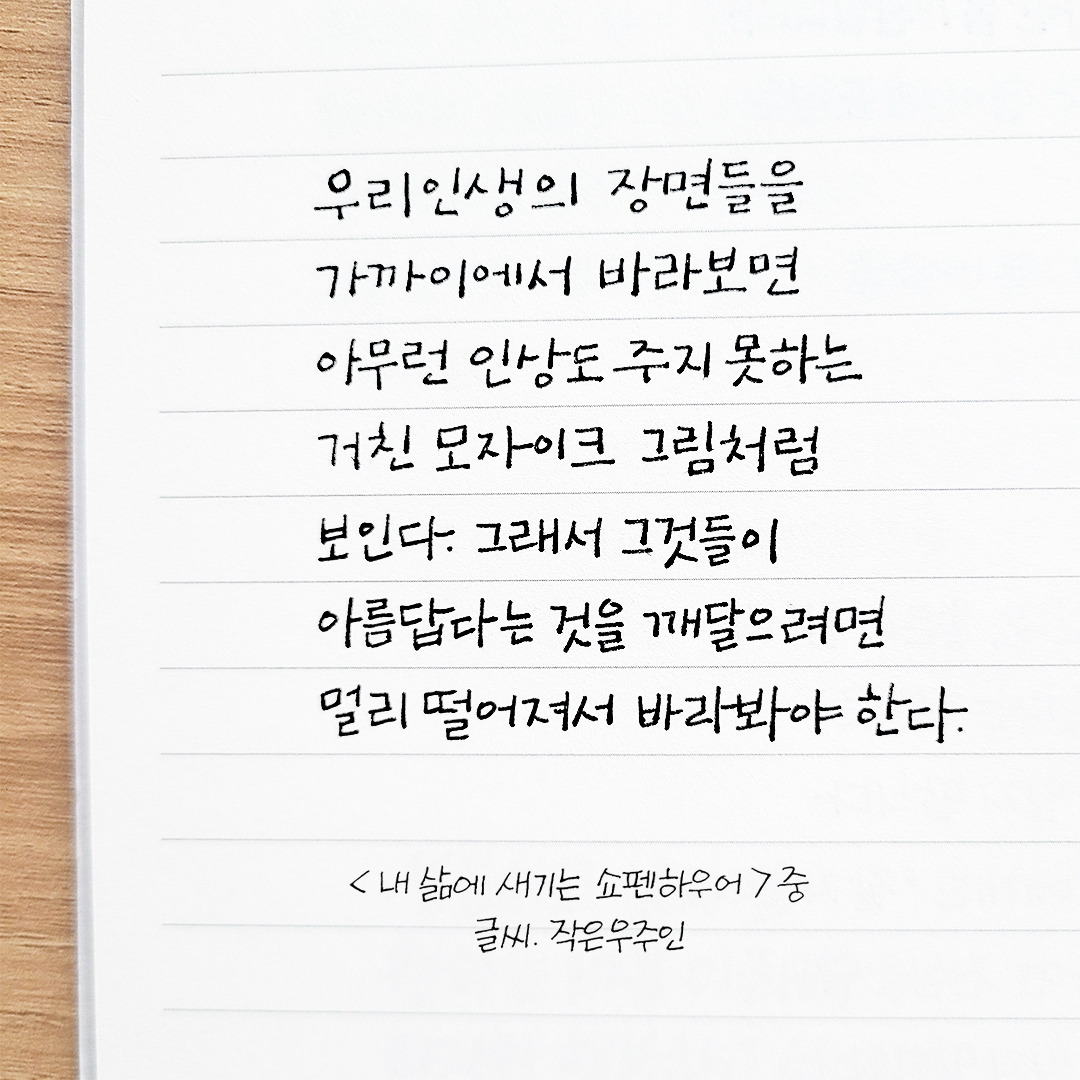 우리 인생의 장면들을
가까이에서 바라보면
아무런 인상도 주지 못하는
거친 모자이크 그림처럼
보인다. 그래서 그것들이
아름답다는 것을 깨달으려면
멀리 떨어져서 바라봐야 한다.
<내 삶에 새기는 쇼펜하우어> 중
글씨. 작은우주인